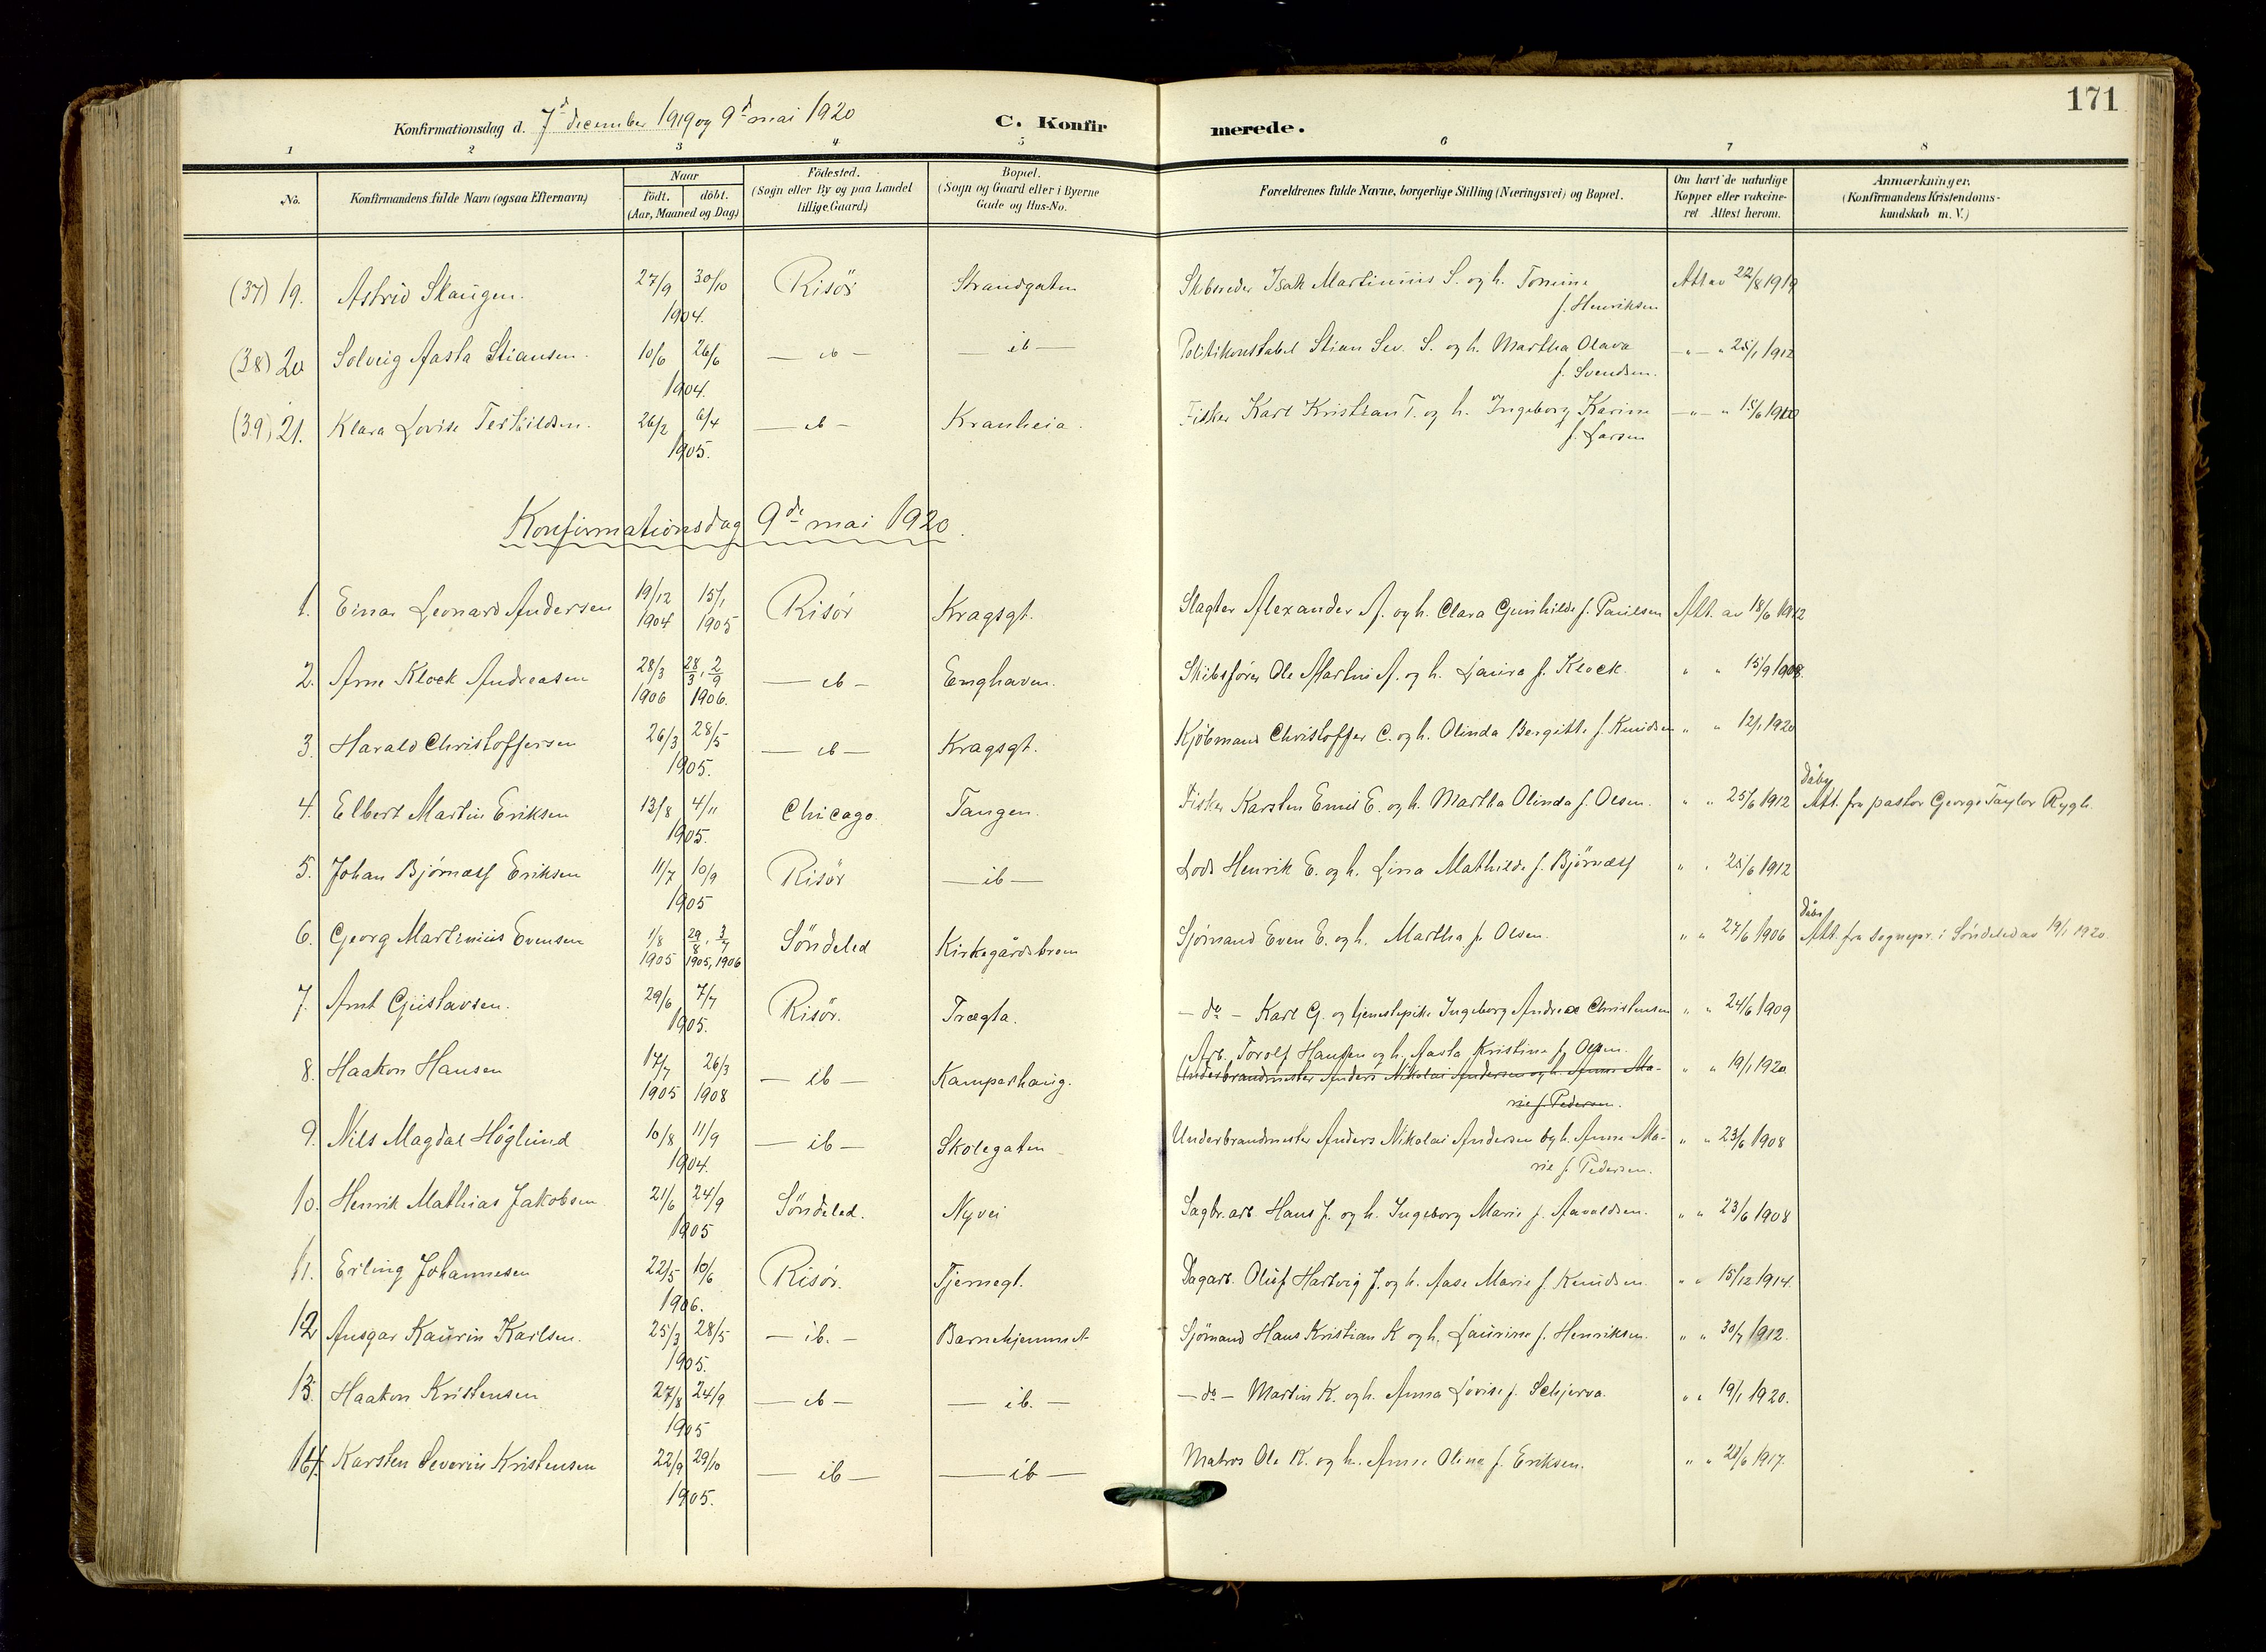 171
Konfirmationsdag d. 7d december 1919 og 9d mai 1920 C. Konfirmerede.
1 2 3 4 5 6 7 8
No. Konfirmandens fulde Navn (ogsaa Efternavn) Naar födt. döbt. (Aar, Maaned og Dag) Födested. (Sogn eller By og paa Landet tillige Gaard) Bopæl. (Sogn og Gaard eller i Byerne Gade og Hus-No. Forældrenes fulde Navne, borgerlige Stilling (Næringsvei) og Bopæl. Om havt de naturlige Kopper eller vakcineret Attest herom. Anmærkninger. (Konfirmandens Kristendomskundskab m. V.)
(37) 19. Astrid Skaugen. 27/9 30/10 Risör Strandgaten Skibsreder Isak Martinius S. og h. Tomine Att av 22/8 1919
1904. f. Henriksen
(38) 20 Solveig Aasta Stiansen. 10/6 26/6 — ib — — ib — Politikonstabel Stian Sev. S. og h. Martha Olava — " — " 25/1 1912
1904. f. Svendsen.
(39) 21. Klara Lovise Terkildsen. 26/2 6/4 — ib — Kranheia. Fisker Karl Kristian T. og h. Ingeborg Karine — " — "
1905. f. Larsen
Konfirmationsdag 9de mai 1920.
1. Einar Leonard Andersen 19/12 1904 15/1 1905 Risör Kragsgt. Slagter Alexander A. og h. Clara Gunhilde f. Paulsen Att. av 18/6 1912
2. Arne Klock Andreasen 28/3 1906 28/3, 2/9 1906. — ib — Enghaven. Skibsfører Ole Martin A. og h. Laura f. Klock. " " 15/9 1908.
3. Harald Christoffersen 26/3 28/5 1905. — ib — Kragsgt. Kjöbmand Christoffer C. og h. Olinda Bergitte f. Knudsen " " 12/1 1920
4. Elbert Martin Eriksen 13/8 4/11 1905. Chicago Tangen. Fisker Karsten Emil E. og h. Martha Olinda f. Olsen. " " 25/6 1912 Dåbs Att. fra pastor George Taylor Rygh.
5. Johan Bjørnæss Eriksen 11/7 10/9 1905 Risör — ib — Lods Henrik E. og h. Lina Mathilde f. Bjørnæss " " 25/6 1912
6. Georg Martinius Evensen 1/8 1905 29/8, 3/7 1905, 1906 Söndeled Kirkegårdsbrom Sjømand Even E. og h. Martha f. Olsen. " " 27/6 1906 Dåbs Att. fra sognepr. i Söndeled av 19/1 1920
7. Arnt Gustavsen. 29/6 7/7 1905. Risör. Trægta. — do — Karl G. og tjenestepike Ingeborg Andrea Christensen " " 24/6 1909
8. Haakon Hansen 17/7 1905 26/3 1908 — ib — Kamperhaug. Arb. Torolf Hansen og h. Aasta Kristine f. Olsen. " " 19/1 1920
Underbrandmester Anders Nikolai Andersen og h. Anne Ma-
rie f. Pedersen.
9. Nils Magdal Höglund 10/8 11/9 1904. — ib — Skolegaten Underbrandmester Anders Nikolai Andersen og h. Anne Ma- " " 23/6 1908
rie f. Pedersen.
10. Henrik Mathias Jakobsen 21/6 24/9 1905 Söndeled. Nyvei Sagbr.arb. Hans J. og h. Ingeborg Marie f. Aavoldsen. " " 23/6 1908
11. Erling Johannesen 22/5 10/6 1906. Risör. Tjernegt. Dagarb. Oluf Hartvig J. og h. Aase Marie f. Knudsen. " " 15/12 1914.
12 Ansgar Kaurin Karlsen. 25/3 28/5 1905. — ib. — Barnehjemmet Sjömand Hans Kristian K og h. Laurine f. Henriksen. " " 30/7 1912.
13. Haakon Kristensen 27/8 24/9 1905 — ib — — ib. — — do — Martin K. og h. Anna Lovise f. Schjerva. " " 19/1 1920.
14. Karsten Severin Kristensen 22/9 29/10 1905. — ib — — ib — Matros Ole K. og h. Anne Oline f. Eriksen. " " 1917.